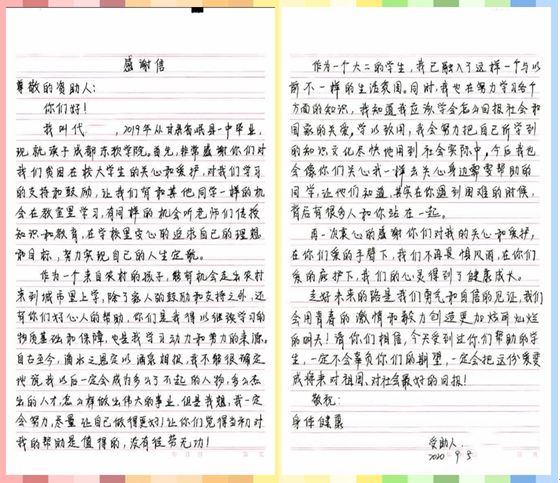 感谢信
尊敬的资助人：
你们好！
我叫代　　，2019年从甘肃省岷县一中毕业，
现就读于成都东软学院。首先，非常感谢你们对
我们贫困在校大学生的关心和爱护，对我们学习
的支持和鼓励，让我们有和其他同学一样的机
会在教室里学习，有同样的机会听老师们传授
知识和教育，在学校里安心的追求自己的理想
和目标，努力实现自己的人生定教。
作为一个来自农村的孩子，能有机会走出农村
来到城市里上学，除了家人的鼓励和支持之外，还
有你们好心人的帮助，你们是我得以继续学习的
物质基础和保障，也是我学习动力和努力的来源。
自古至今，滴水之恩定以涌泉相报，我不能很确定
他说我以后一定会成为多么了不起的人物，多么杰
出的人才，怎么样做出伟大的事业，但是我想，我一定
会努力，尽量让自己做得更好！让你们觉得当初对
我的帮助是值得的，没有徒劳无功！
作为一个大二的学生，我已融入了这样一个与以
前不一样的生活氛围。同时，我也在努力学习各个
方面的知识，我知道我应该学会怎么回报社会和
国家的关爱，学以致用，我会努力把自己所学到
的知识文化尽快地用到社会实际中，今后我也
会像你们关心我一样去关心身边需要帮助的
同学，让他们知道，其实在你遇到困难的时候，
背后有很多人和你站在一起。
再一次衷心的感谢你们对我的关心和爱护，
在你们爱的手臂下，我们不再是惧风雨，在你们
爱的庇护下，我们的心灵得到了健康成长。
走好未来的路是我们勇气和自信的见证，我们
会用青春的激情和毅力创造更加炫丽灿烂
的明天！请你们相信，今天受到过你们帮助的学
生，一定不会辜负你们的期望，一定会把这份爱变
成将来对祖国、对社会最好的回报！
敬祝：
身体健康
受助人：
2020 9.5